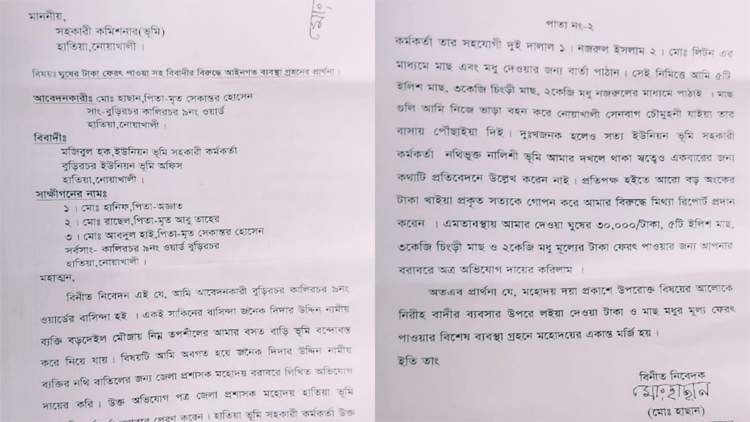 মোঃ
মাননীয়,
সহকারী কমিশনার(ভূমি)
হাতিয়া,নোয়াখালী ।
বিষয়ঃ ঘুষের টাকা ফেরৎ পাওয়া সহ বিবাদীর বিরুদ্ধে আইনগত ব্যবস্থা গ্রহনের প্রার্থনা ।
আবেদনকারীঃ মোঃ হাছান,পিতা-মৃত সেকান্তর হোসেন
সাং-বুড়িরচর কালিরচর ৯নং ওয়ার্ড
হাতিয়া,নোয়াখালী ।
বিবাদীঃ
মজিবুল হক,ইউনিয়ন ভূমি সহকারী কর্মকর্তা
বুড়িরচর ইউনিয়ন ভূমি অফিস
হাতিয়া,নোয়াখালী ।
সাক্ষীগনের নামঃ
১ । মোঃ হানিফ,পিতা-অজ্ঞাত
২ । মোঃ রাছেল,পিতা-মৃত আবু তাহের
৩ । মোঃ আবদুল হাই,পিতা-মৃত সেকান্তর হোসেন
সর্বসাং- কালিরচর ৯নং ওয়ার্ড বুড়িরচর
হাতিয়া,নোয়াখালী ।
মহাত্মন,
বিনীত নিবেদন এই যে, আমি আবেদনকারী বুড়িরচর কালিরচর ৯নং
ওয়ার্ডের বাসিন্দা হই । একই সাকিনের বাসিন্দা জনৈক দিদার উদ্দিন নামীয়
ব্যক্তি বড়দেইল মৌজায় নিম্ন তপশীলের আমার বসত বাড়ি ভূমি বন্দোবস্ত
করে নিয়ে যায় । বিষয়টি আমি অবগত হয়ে জনৈক দিদার উদ্দিন নামীয়
ব্যক্তির নথি বাতিলের জন্য জেলা প্রশাসক মহোদয় বরাবরে লিখিত অভিযোগ
দায়ের করি । উক্ত অভিযোগ পত্র জেলা প্রশাসক মহোদয় হাতিয়া ভূমি
বরাবরে প্রেরণ করেন । হাতিয়া ভূমি সহকারী কর্মকর্তা উক্ত
পাতা নং-২
কর্মকর্তা তার সহযোগী দুই দালাল ১ । নজরুল ইসলাম ২ । মোঃ লিটন এর
মাধ্যমে মাছ এবং মধু দেওয়ার জন্য বার্তা পাঠান । সেই নিমিত্তে আমি ৫টি
ইলিশ মাছ, ৩কেজি চিংড়ী মাছ, ২কেজি মধু নজরুলের মাধ্যমে পাঠাই । মাছ
গুলি আমি নিজে ভাড়া বহন করে নোয়াখালী সেনবাগ চৌমুহনী যাইয়া তার
বাসায় পৌঁছাইয়া দিই । দুঃখজনক হলেও সত্য ইউনিয়ন ভূমি সহকারী
কর্মকর্তা নথিভুক্ত নালিশী ভূমি আমার দখলে থাকা স্বত্বেও একবারের জন্য
কথাটি প্রতিবেদনে উল্লেখ করেন নাই । প্রতিপক্ষ হইতে আরো বড় অংকের
টাকা খাইয়া প্রকৃত সত্যকে গোপন করে আমার বিরুদ্ধে মিথ্যা রিপোর্ট প্রদান
করেন । এমতাবস্থায় আমার দেওয়া ঘুষের ৩০,০০০/টাকা, ৫টি ইলিশ মাছ,
৩কেজি চিংড়ী মাছ ও ২কেজি মধু মূল্যের টাকা ফেরৎ পাওয়ার জন্য আপনার
বরাবরে অত্র অভিযোগ দায়ের করিলাম ।
অতএব প্রার্থনা যে, মহোদয় দয়া প্রকাশে উপরোক্ত বিষয়ের আলোকে
নিরীহ বাদীর ব্যবসার উপরে লইয়া দেওয়া টাকা ও মাছ মধুর মূল্য ফেরৎ
পাওয়ার বিশেষ ব্যবস্থা গ্রহনে মহোদয়ের একান্ত মর্জি হয় ।
ইতি তাং
বিনীত নিবেদক
মোঃ হাছান
(মোঃ হাছান)